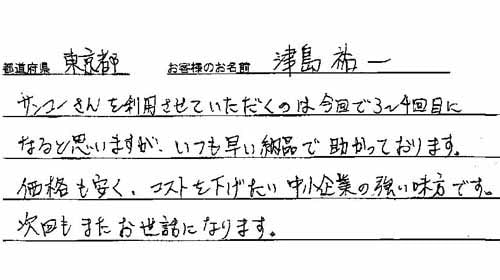 都道府県 東京都 お客様のお名前 津島 祐一
サンコーさんを利用させていただくのは今回で3~4回目に
なると思いますが、いつも早い納品で助かっております。
価格も安く、コストを下げたい中小企業の強い味方です。
次回もまたお世話になります。